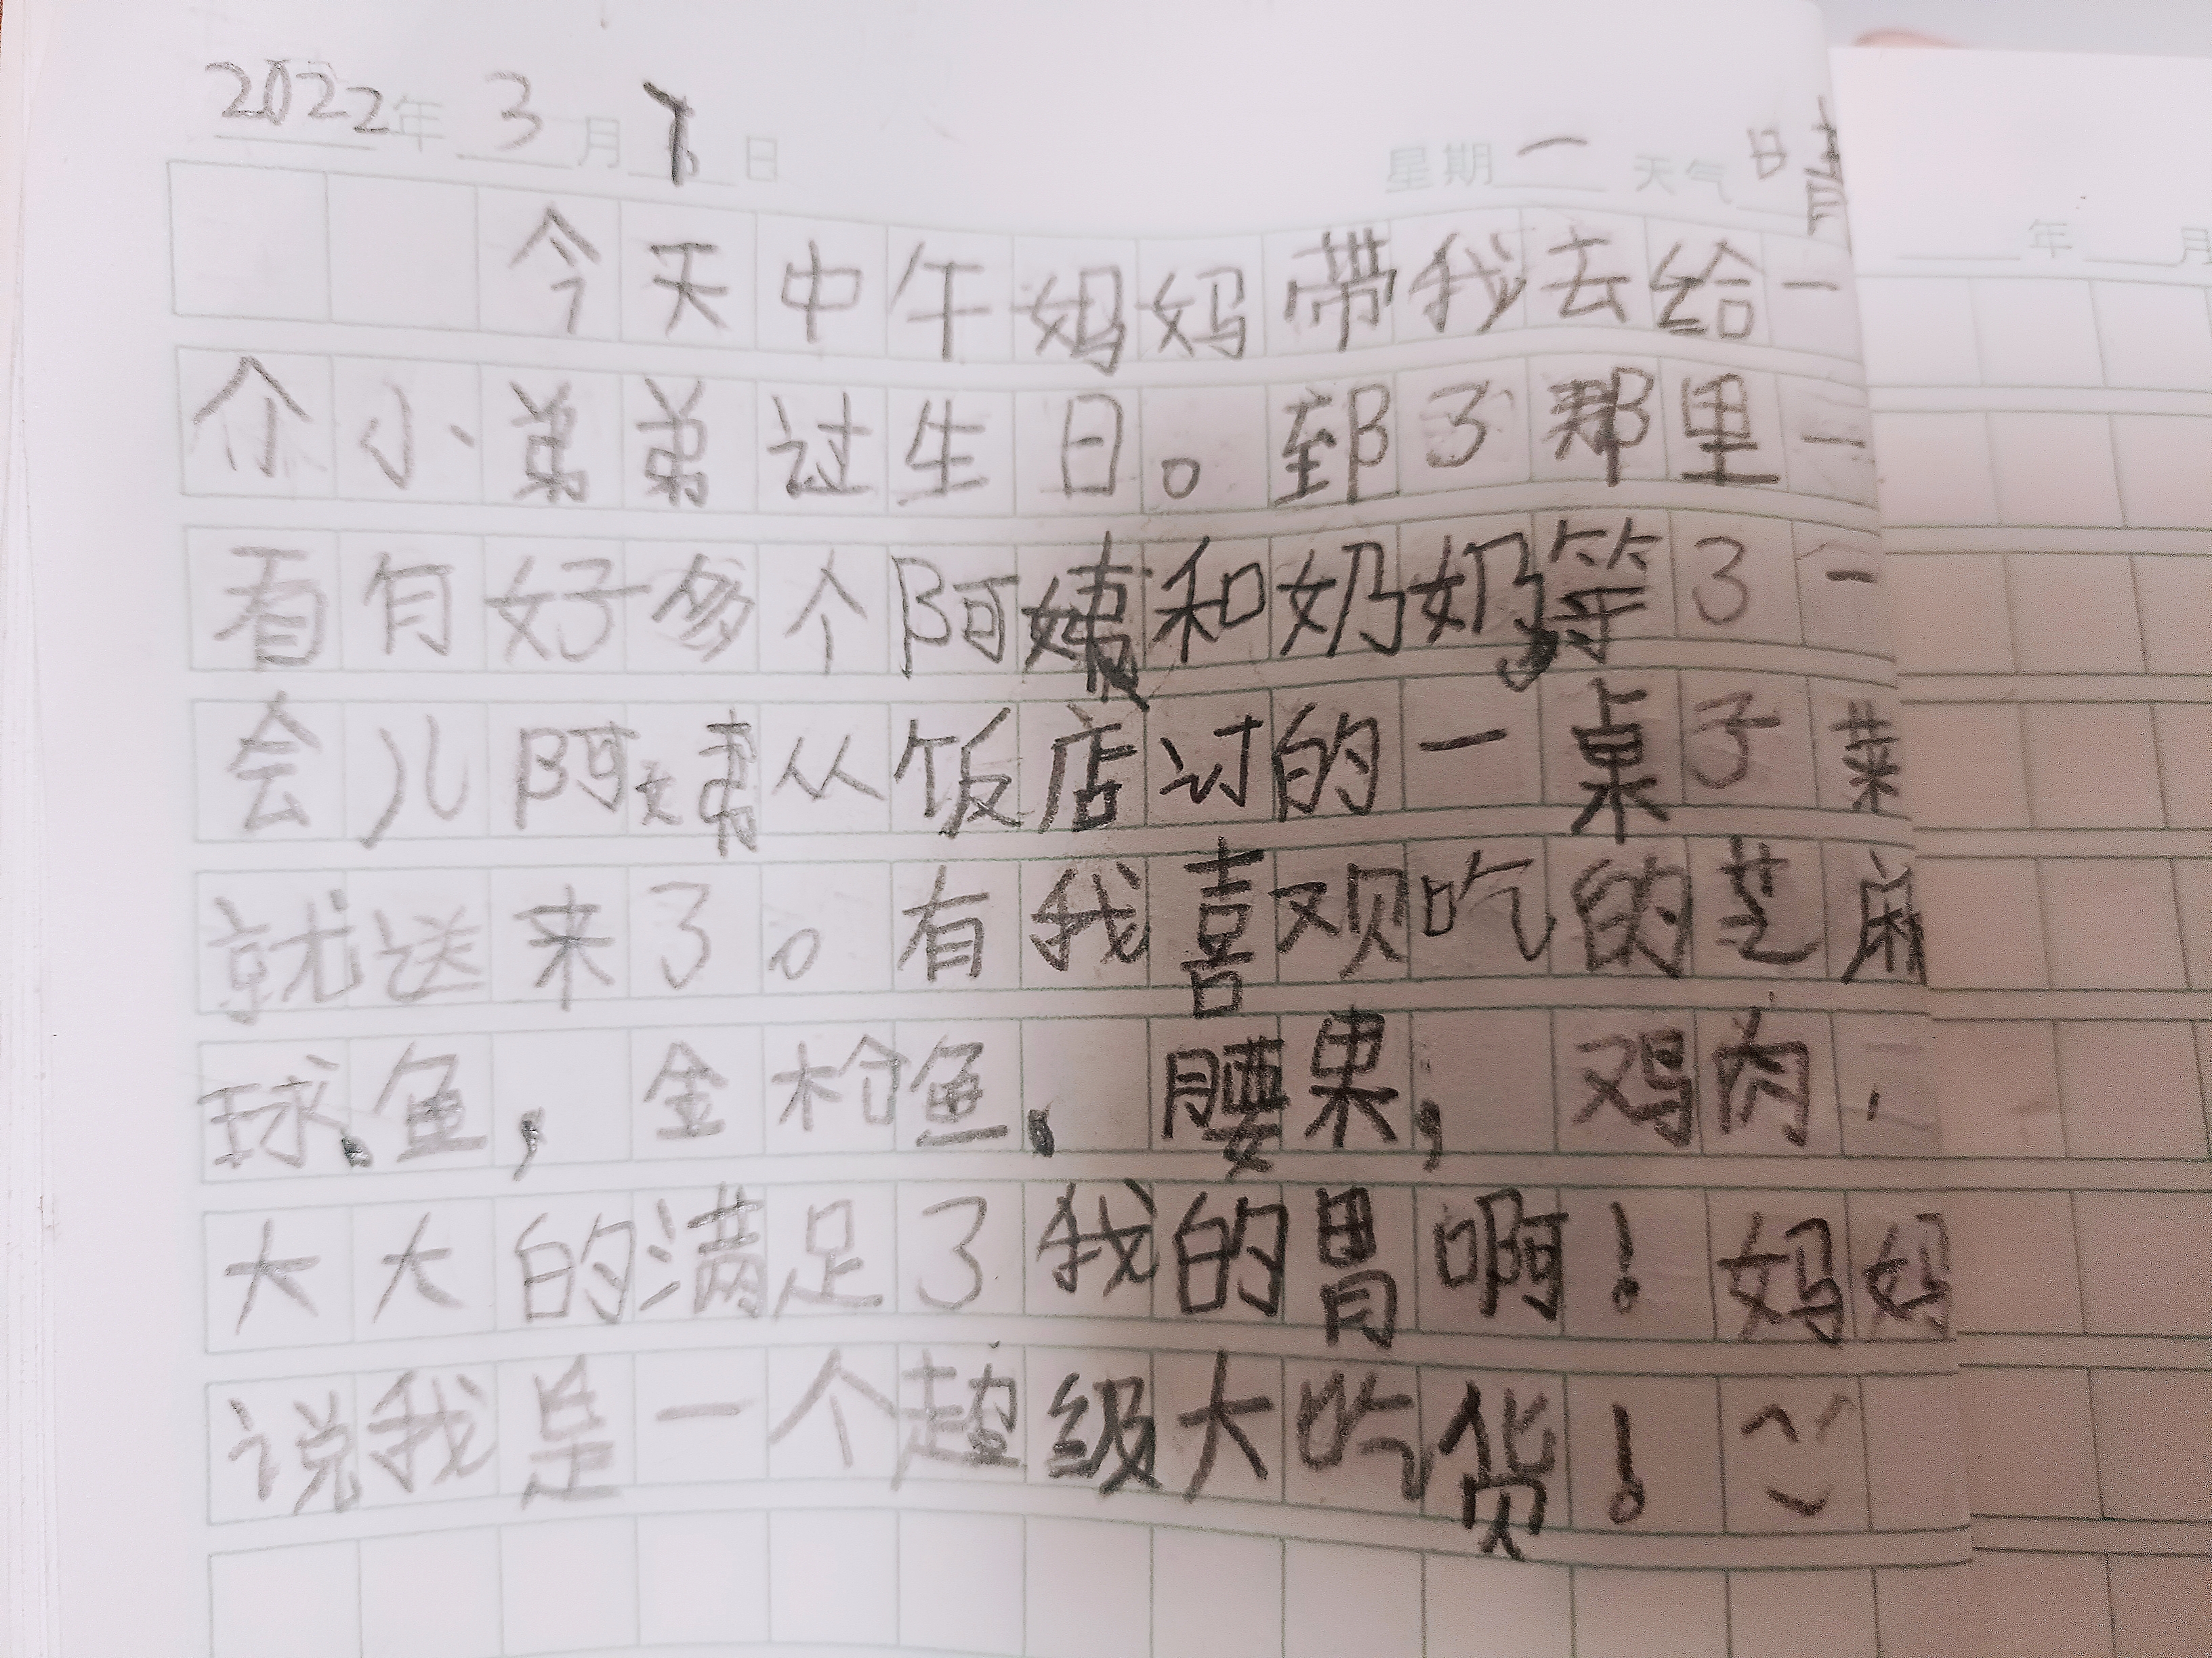 2022年 3 月 7 日 星期 一 天气 晴
年 月
今天中午妈妈带我去给一
个小弟弟过生日。到了那里一
看有好多个阿姨和奶奶,等了一
会儿阿姨从饭店订的一桌子菜
就送来了。有我喜欢吃的芝麻
球、鱼, 金枪鱼、腰果, 鸡肉,
大大的满足了我的胃啊!妈妈
说我是一个超级大吃货!